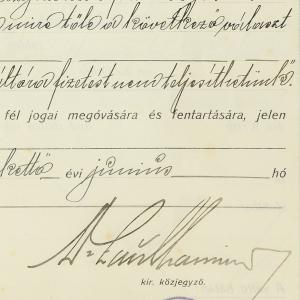 mire tőle a következő választ
fizetést nem teljesíthetünk".
fél jogai megóvására és fentartására, jelen
kettő évi június hó
Dr
kir. közjegyző.